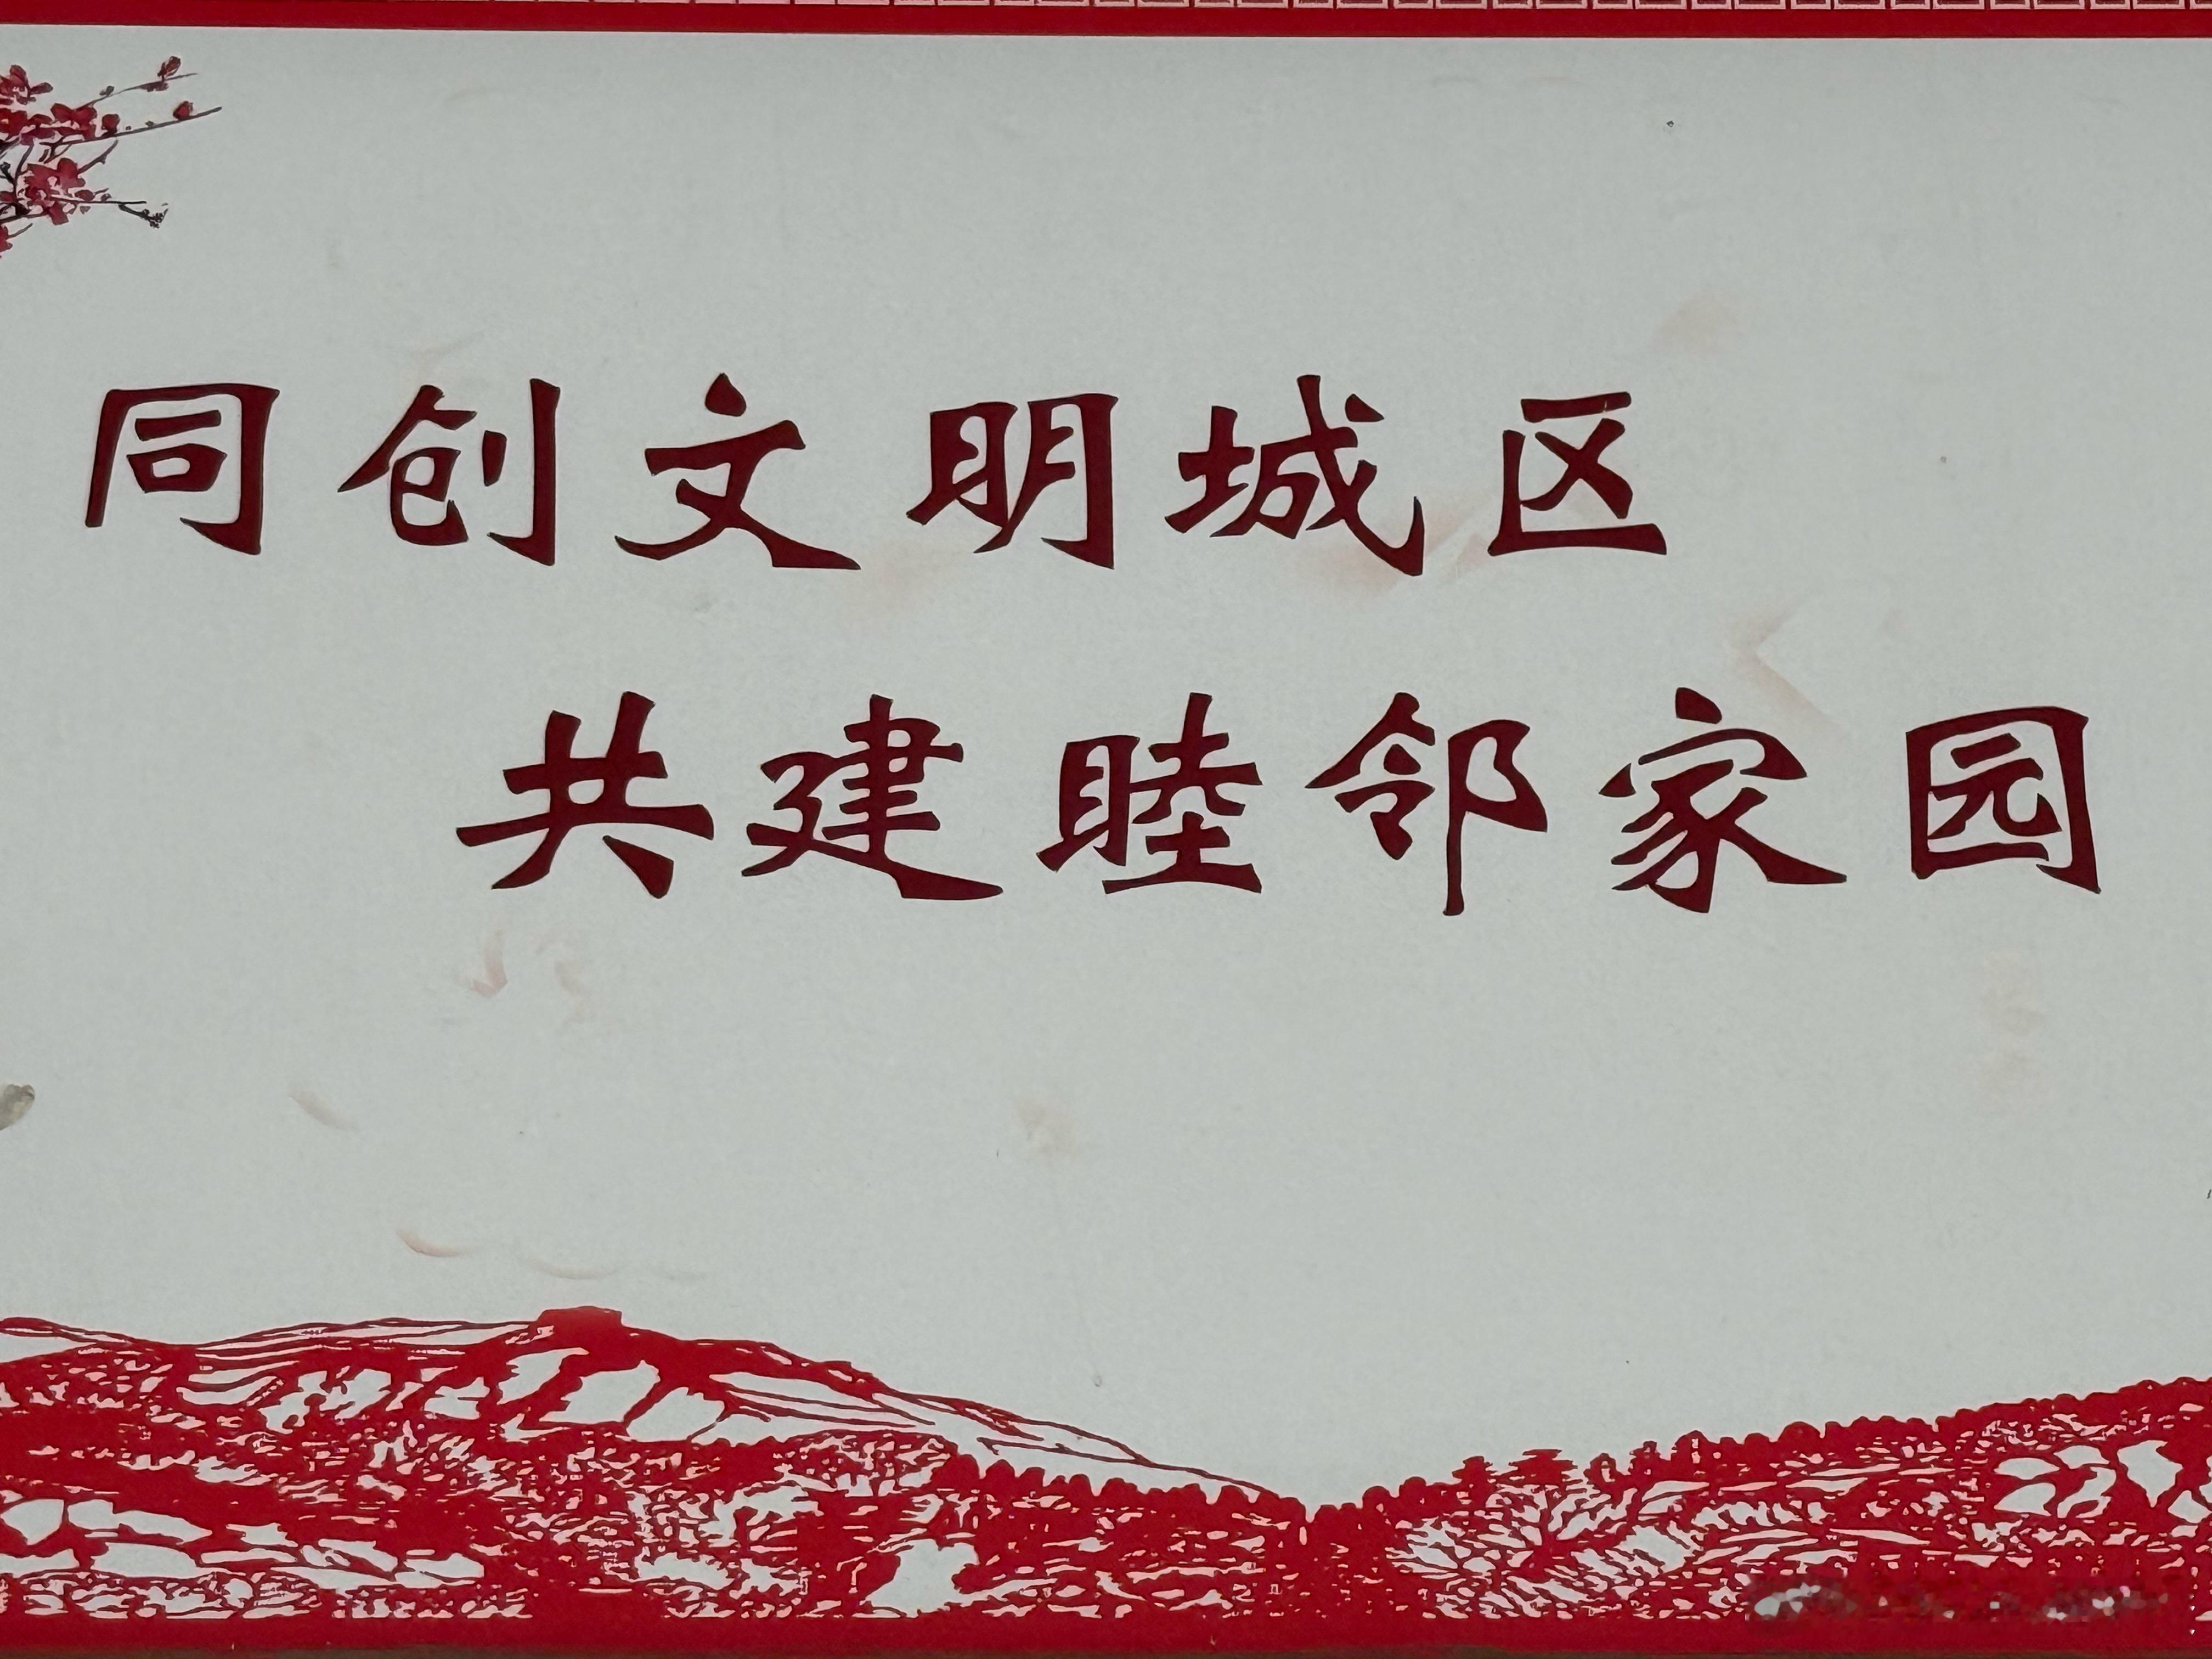 同创文明城区
共建睦邻家园